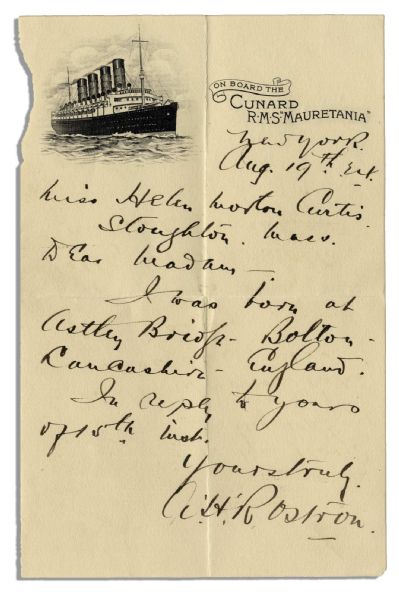 ON BOARD THE
CUNARD
R.M.S. "MAURETANIA"
New York.
Aug. 19th
Miss Helen Morton Curtis.
Stoughton. Mass.
Dear Madam —
I was born at
Astley Bridge - Bolton -
Lancashire - England.
In reply to yours
of 15th inst.
Yours truly.
A.H. Rostron.